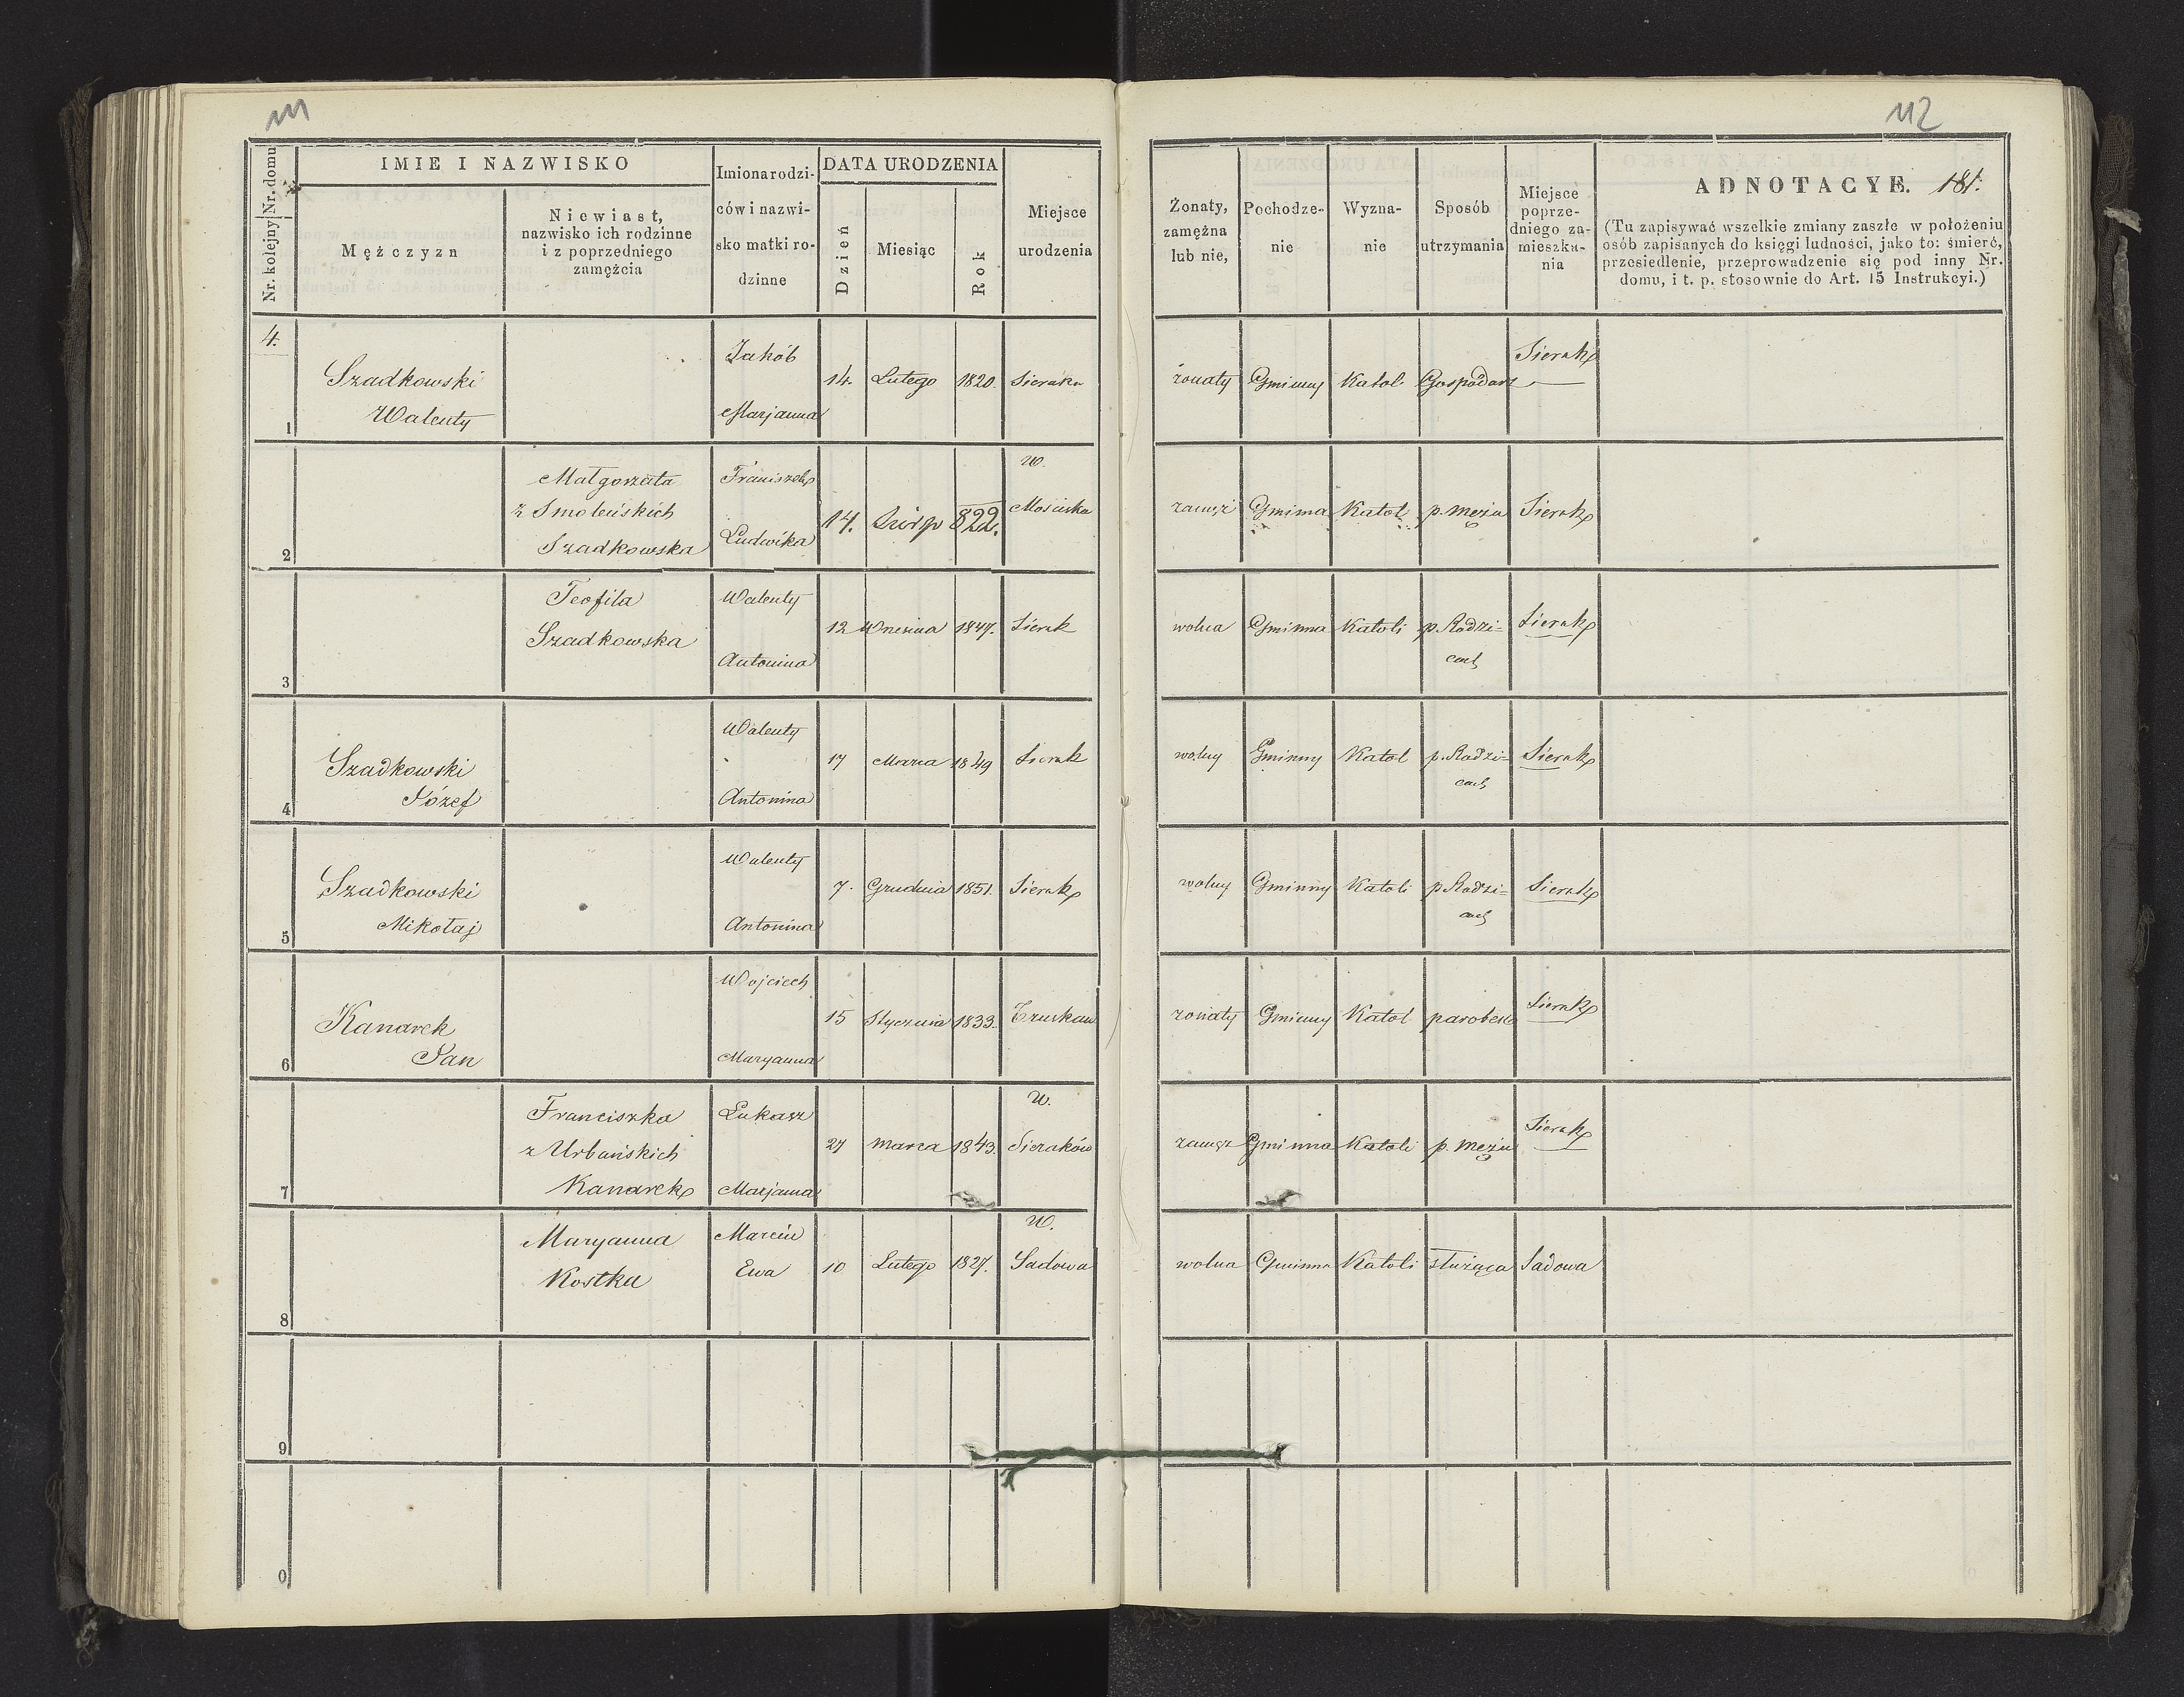 111
112
Nr. kolejny Nr. domu
IMIE I NAZWISKO
Mężczyzn
Niewiast,
nazwisko ich rodzinne
i z poprzedniego
zamężcia
Imiona rodzi-
ców i nazwi-
sko matki ro-
dzinne
DATA URODZENIA
Dzień
Miesiąc
Rok
Miejsce
urodzenia
Żonaty,
zamężna
lub nie,
Pochodze-
nie
Wyzna-
nie
Sposób
utrzymania
Miejsce
poprze-
dniego za-
mieszka-
nia
ADNOTACYE. 181.
(Tu zapisywać wszelkie zmiany zaszłe w położeniu
osób zapisanych do księgi ludności, jako to: śmierć,
przesiedlenie, przeprowadzenie się pod inny Nr.
domu, i t. p. stosownie do Art. 15 Instrukcyi.)
4.
1
Szadkowski
Walenty
Jakób
Marjanna
14. Lutego 1820. Sieraku
żonaty Gminny Katol. Gospodarz
Sierak
2
Małgorzata
z Smoleńskich
Szadkowska
Franiszek
Ludwika
14. 822.
W.
Mościska
zamęż Gminna Katol p. mężu Sierak
3
Teofila
Szadkowska
Walenty
Antonina
12 Wrześnie 1847. Sierak
wolna Gminna Katoli p. Rodzi=
cach
Sierak
4
Szadkowski
Józef
Walenty
Antonina
17 Marca 1849 Sierak
wolny Gminny Katol p. Rodzi=
cach
Sierak
5
Szadkowski
Mikołaj
Walenty
Antonina
7. Grudnia 1851. Sierak
wolny Gminny Katoli p Rodzi=
cach
Sierak
6
Kanarek
Jan
Wojciech
Maryanna
15 Stycznia 1833. Truskaw
żonaty Gminny Katol parobek
Sierak
7
Franciszka
z Urbańskich
Kanarek
Łukasz
Marjanna
27 Marca 1843.
W.
Sieraków
zamęż Gminna Katoli p. mężu
Sierak
8
Maryanna
Kostka
Marcin
Ewa
10 Lutego 1827.
W.
Sadowa
wolna Gminna Katoli służąca Sadowa
9
0